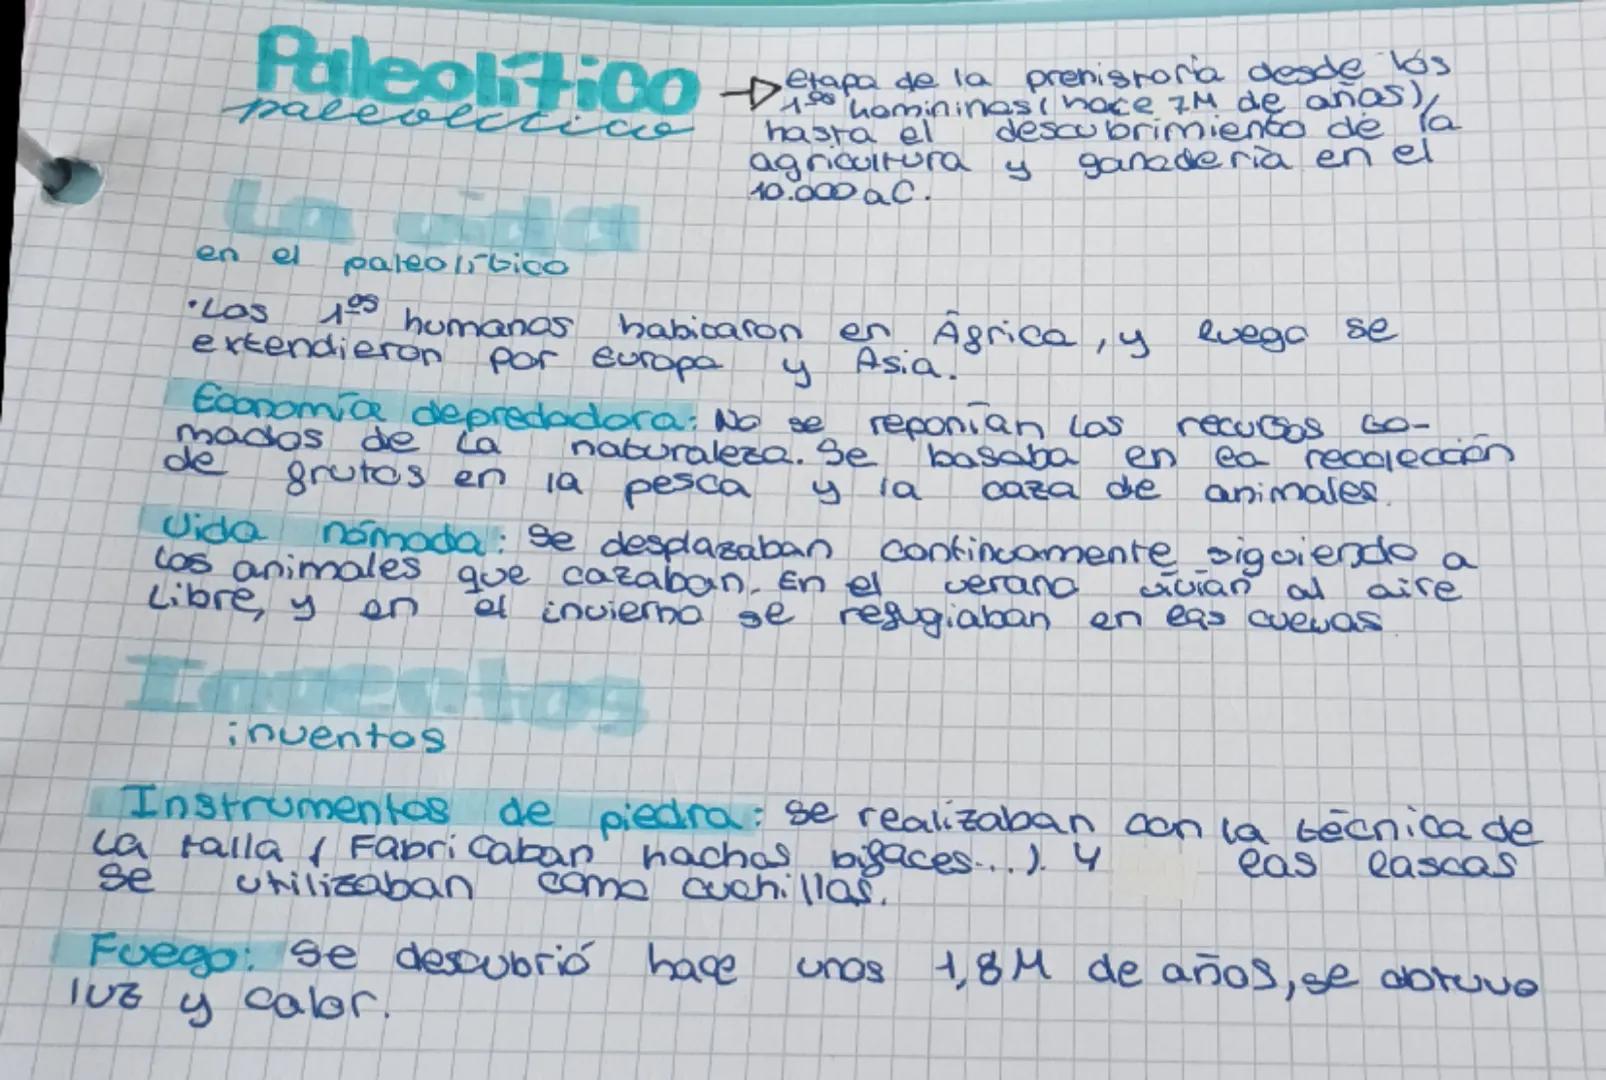 Paleolítico
paleolítico
→ etapa de la prehistoria desde los
1ºs homininos (hace 7M de años),
hasta el descubrimiento de la
agricultura y ganadería en el
10.000 a C.
La vida
en el paleolítico
·Los 1ºs humanos habitaron en África, y luego se
extendieron por Europa y Asia.
Economía depredadora: No se reponían los recursos to-
mados de la naturaleza. Se basaba en la recolección
de frutos en la pesca y la caza de animales.
Vida nómada: Se desplazaban continuamente siguiendo a
los animales que cazaban. En el verano vivían al aire
Libre, y en el invierno se refugiaban en las cuevas
Inventos
inventos
Instrumentos de piedra: se realizaban con la técnica de
La talla (Fabricaban hachas bifaces...). Y las lascas
se utilizaban como cuchillas.
Fuego: Se descubrió hace unos 1,8M de años, se obtuvo
luz y calor.